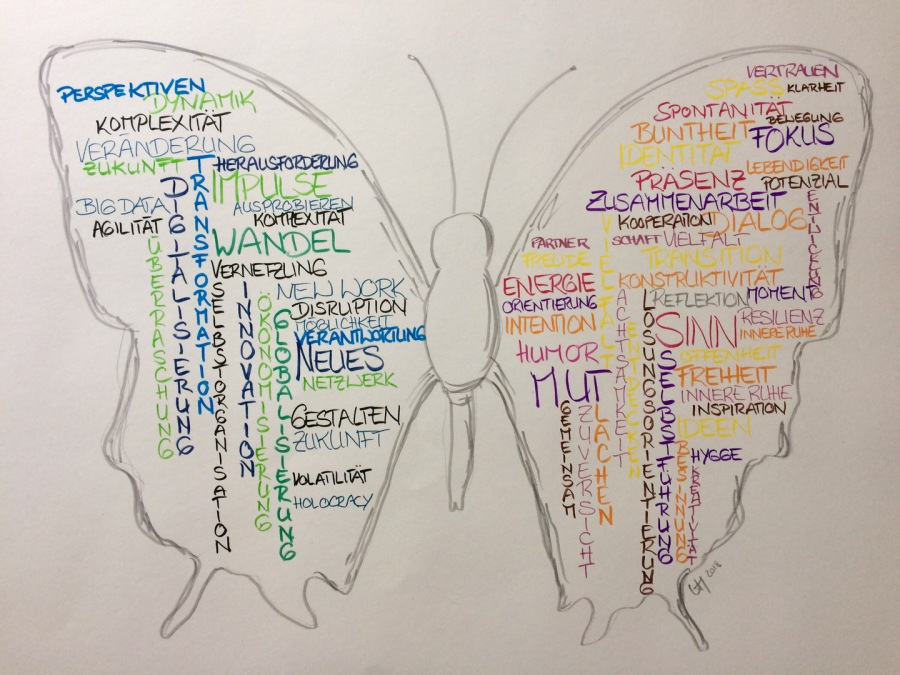 PERSPEKTIVEN
DYNAMIK
KOMPLEXITÄT
VERÄNDERUNG
ZUKUNFT
TRANSFORMATION
HERAUSFORDERUNG
DIGITALISIERUNG
IMPULSE
BIG DATA
AUSPROBIEREN
AGILITÄT
KOMPLEXITÄT
ÜBERRASCHUNG
WANDEL
VERNETZUNG
SELBSTORGANISATION
INNOVATION
NEW WORK
ÖKONOMISIERUNG
DISRUPTION
GLOBALISIERUNG
MÖGLICHKEIT
VERANTWORTUNG
NEUES
NETZWERK
GESTALTEN
ZUKUNFT
VOLATILITÄT
HOLOCRACY
VERTRAUEN
SPASS
KLARHEIT
SPONTANITÄT
BEWEGUNG
BUNTHEIT
FOKUS
IDENTITÄT
LEBENDIGKEIT
PRÄSENZ
POTENZIAL
ZUSAMMENARBEIT
ENTWICKLUNG
KOOPERATION
DIALOG
VIELFALT
PARTNER
SCHAFT
VIELFALT
FREUDE
TRANSITION
ENERGIE
KONSTRUKTIVITÄT
ACHTSAMKEIT
LÖSUNGSORIENTIERUNG
REFLEKTION
MOMENT
ORIENTIERUNG
INTENTION
SINN
RESILIENZ
ENTDECKEN
INNERE RUHE
HUMOR
SELBSTFÜHRUNG
OFFENHEIT
FREIHEIT
MUT
INNERE RUHE
GEMEINSAM
ZUVERSICHT
LACHEN
INSPIRATION
IDEEN
BESINNUNG
HYGGE
KREATIVITÄT
2018